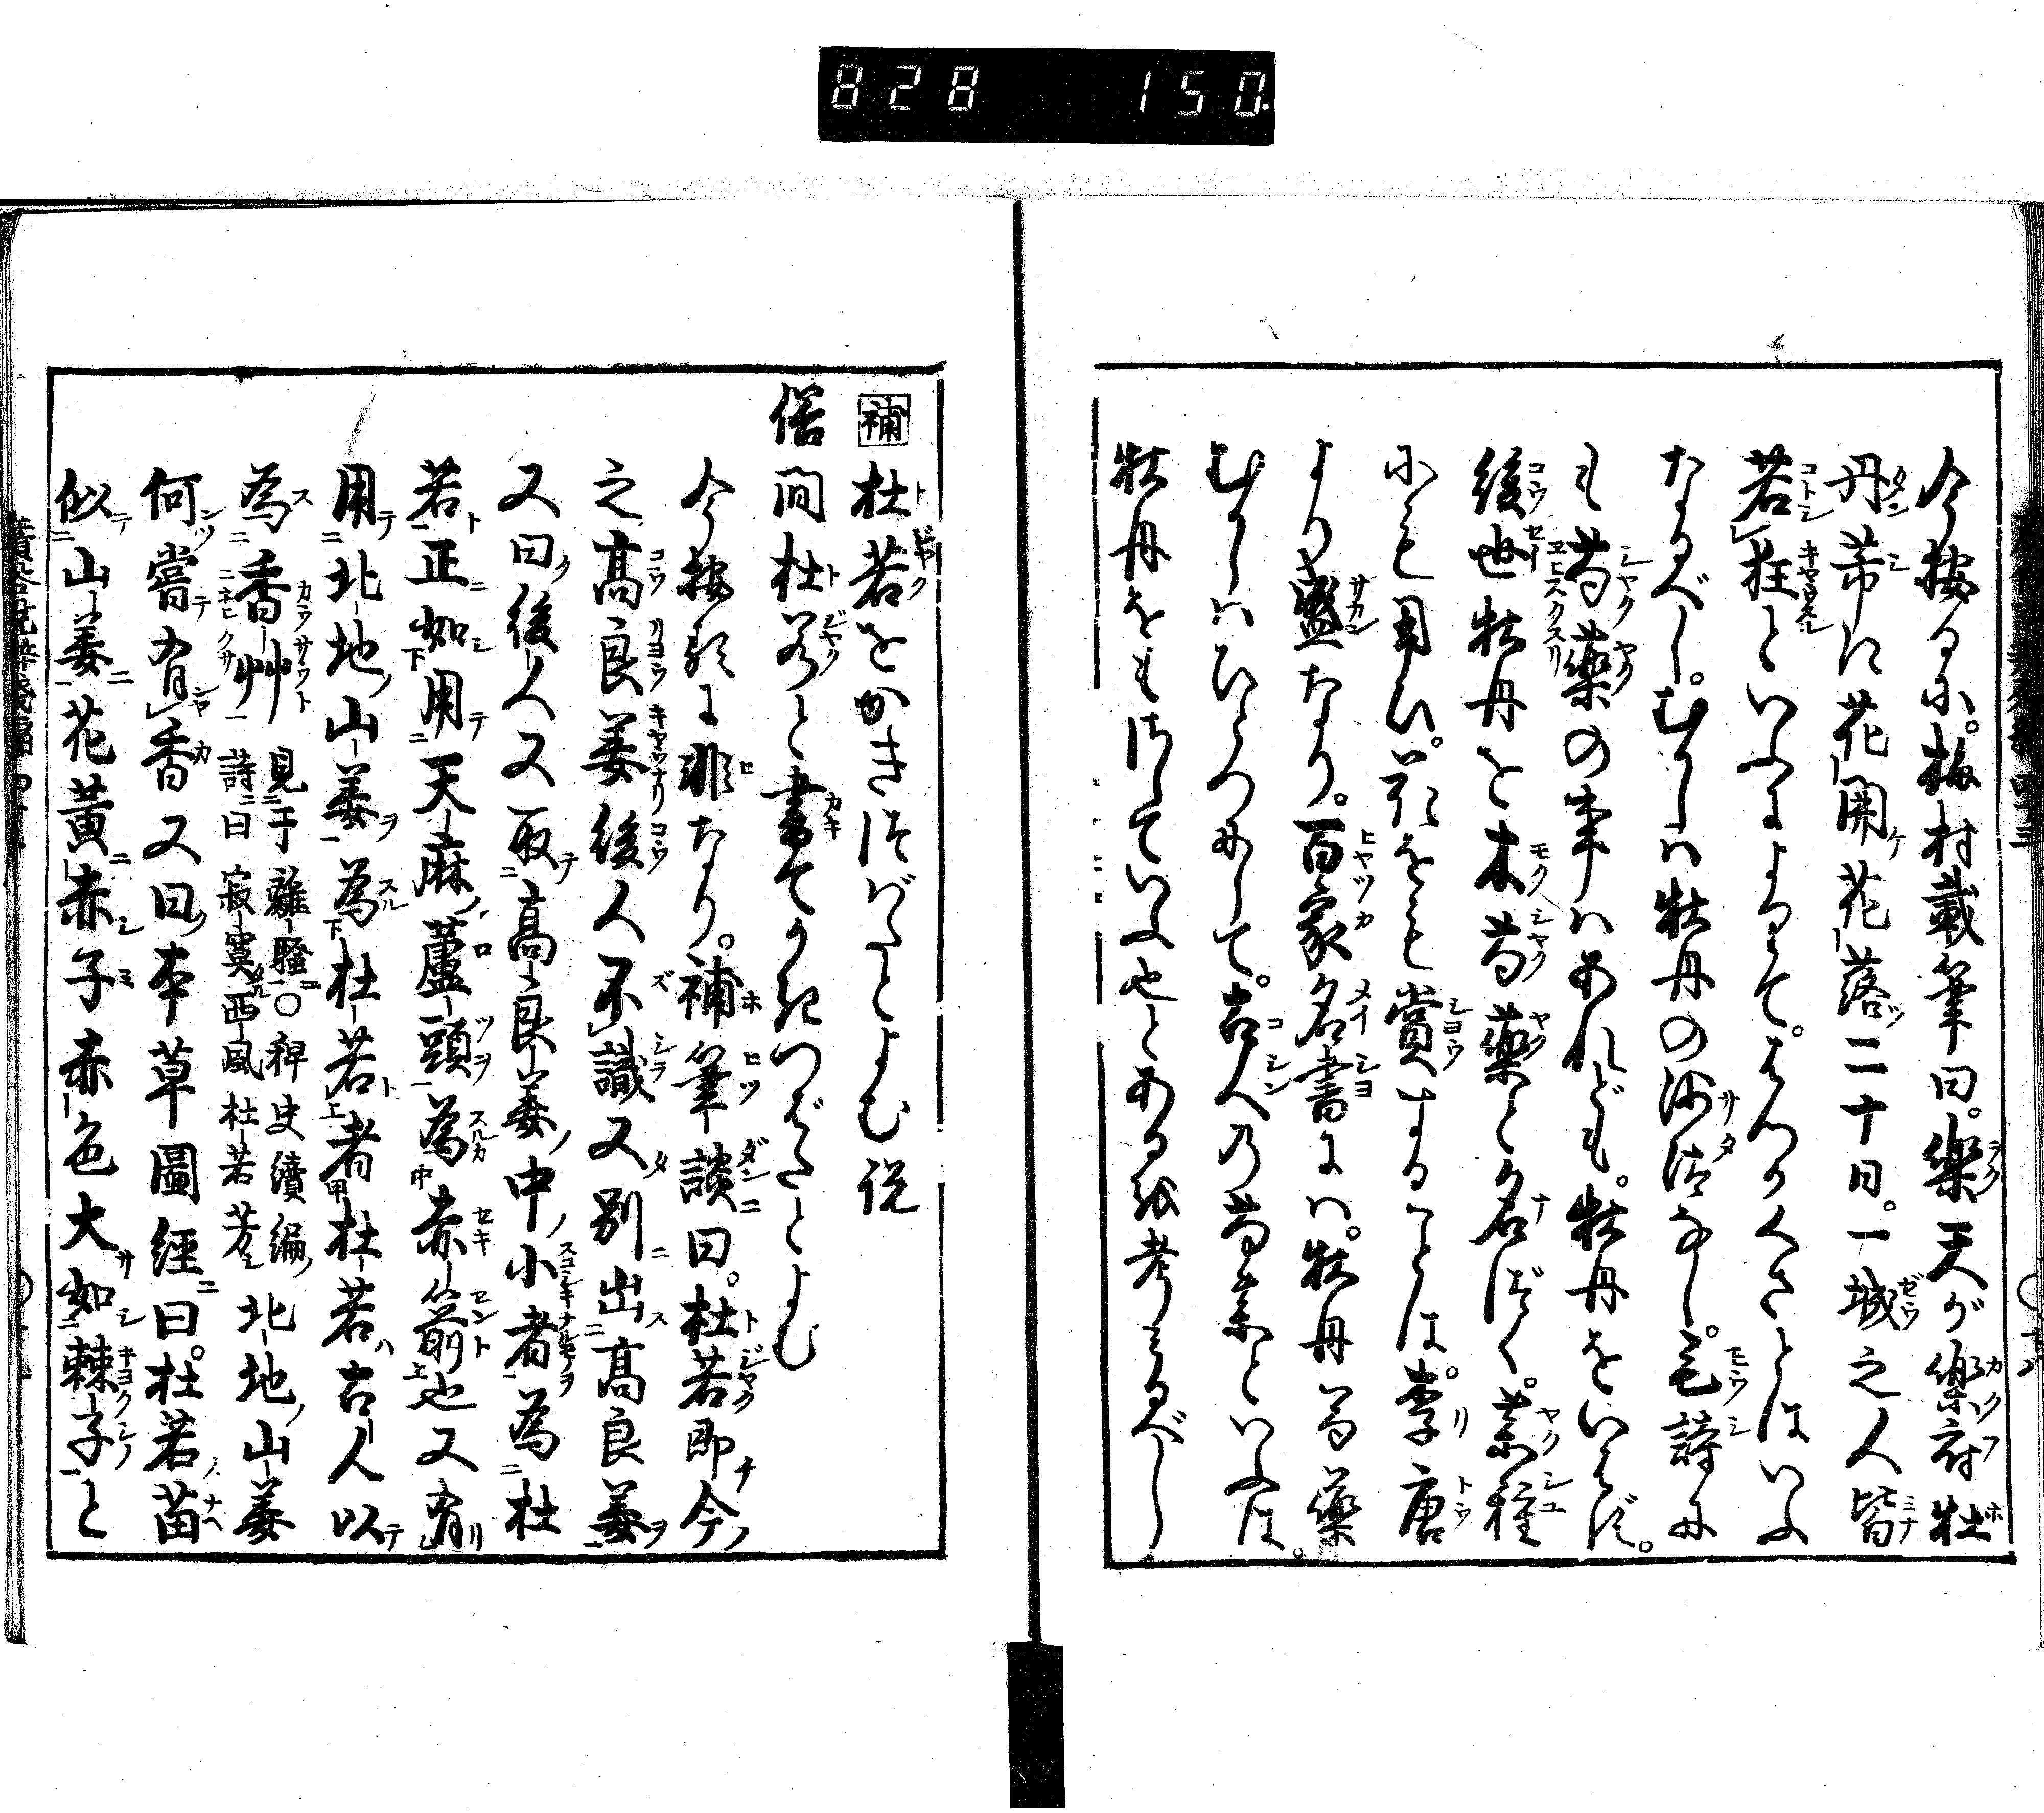 828 150
今按るに。梅村載筆曰。樂天が樂府牡
丹芳に花開花落二十日。一城之人皆
若狂といふによりて。はつかくさとはいふ
なるべし。むかしハ牡丹の沙汰なし。毛詩に
も芍藥の事ハあれども。牡丹をいはず。
後世牡丹を木芍藥と名づく。薬種
にも用ひ。花をも賞する事は。李唐
より盛なり。百家名書にハ。牡丹芍藥
むかしハひとつにして。古人の芍薬といふは。
牡丹をもさしていふ也とある故考みるべし
補 杜若をかきつばたとよむ説
俗間杜若と書てかきつばたとよむ
今按ずるに非なり。補筆談曰。杜若即今
之高良姜後人不識又別出高良姜
又曰後人又取高良姜中小者為杜
若正如用天麻蘆頭為赤箭也又有
用北地山姜為杜若者杜若古人以
為香艸 見于離騷○稗史續編
詩曰寂寞西風杜若芳 北地山姜
何嘗有香又曰本草圖經曰。杜若苗
似山姜花黃赤子赤色大如棘子と